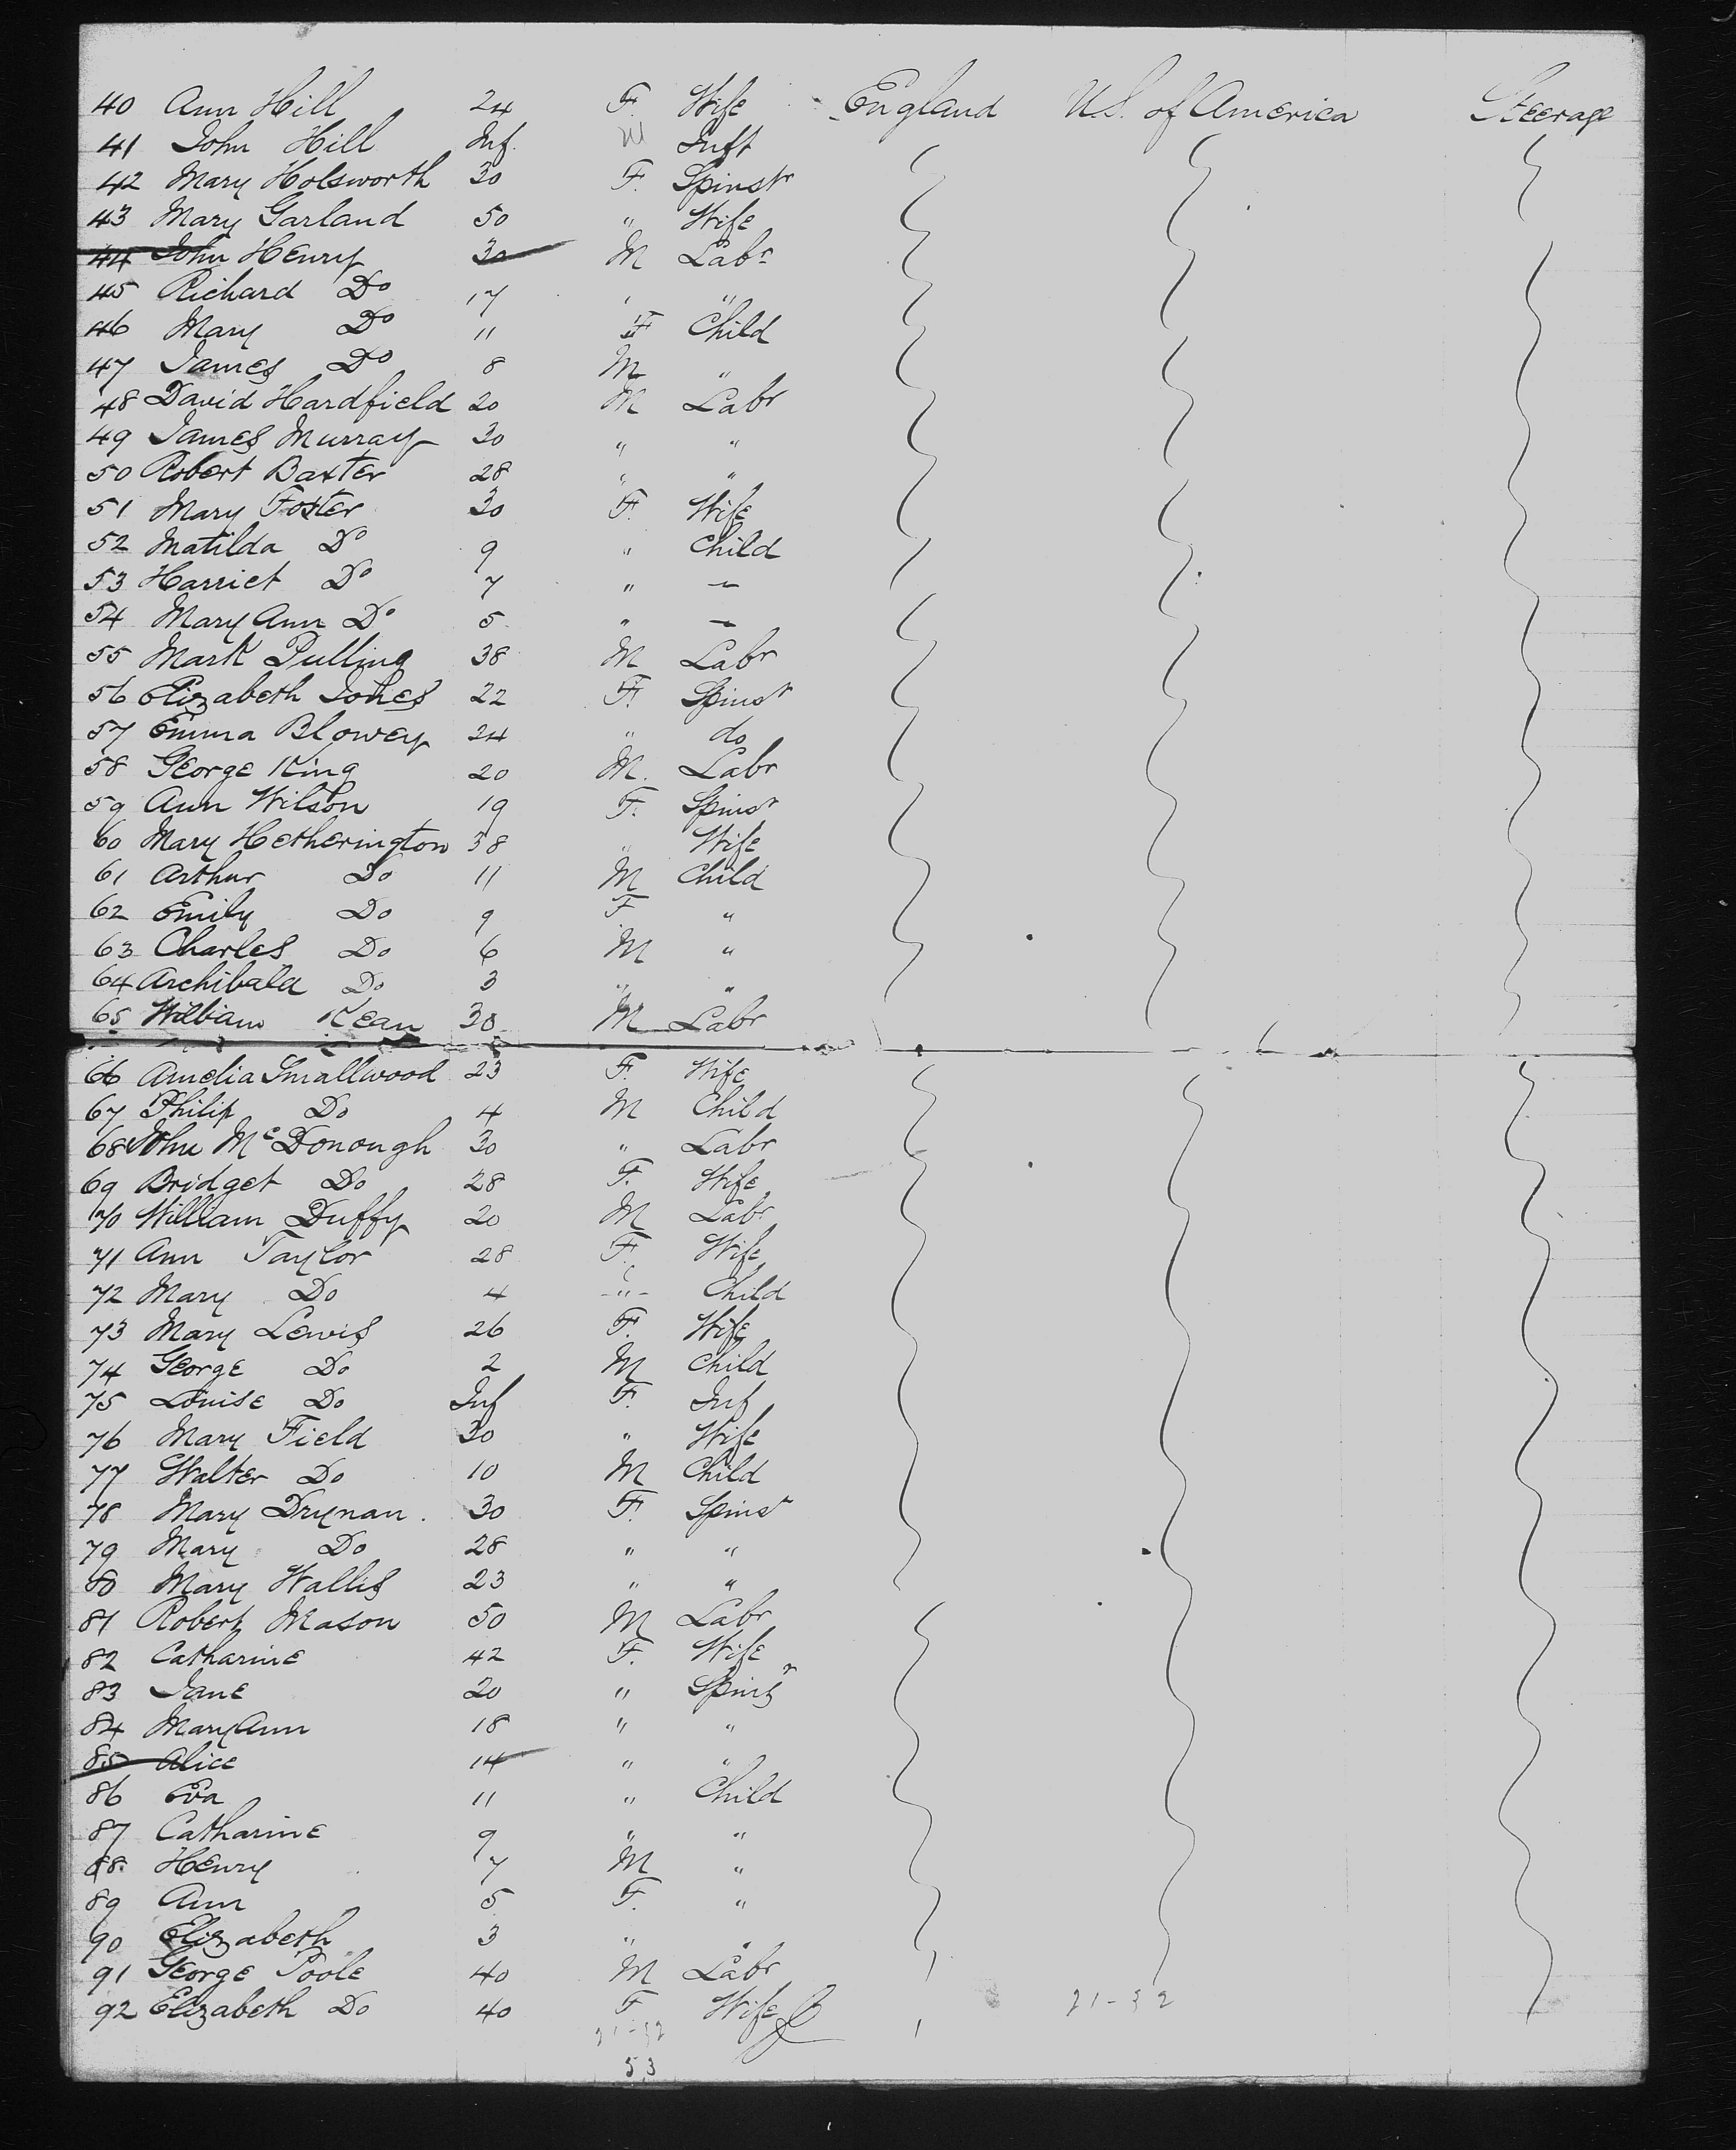 40 Ann Hill 24 F. Wife England U.S. of America Steerage
41 John Hill Inf. M Inft
42 Mary Holsworth 30 F. Spinstr
43 Mary Garland 50 " Wife
44 John Henry 30 M Labr
45 Richard Do 17 " "
46 Mary Do 11 F Child
47 James Do 8 M "
48 David Hardfield 20 M Labr
49 James Murray 30 " "
50 Robert Baxter 28 " "
51 Mary Foster 30 F. Wife
52 Matilda Do 9 " Child
53 Harriet Do 7 " "
54 Mary Ann Do 5 " "
55 Mark Pulling 38 M Labr
56 Elizabeth Jones 22 F. Spinst
57 Emma Blowey 24 " do
58 George King 20 M. Labr
59 Ann Wilson 19 F. Spinsr
60 Mary Hetherington 38 " Wife
61 Arthur Do 11 M Child
62 Emily Do 9 F "
63 Charles Do 6 M "
64 Archibald Do 3 " "
65 William Kean 30 M Labr
66 Amelia Smallwood 23 F. Wife
67 Philip Do 4 M Child
68 John McDonough 30 " Labr
69 Bridget Do 28 F. Wife
70 William Duffy 20 M Labr
71 Ann Taylor 28 F. Wife
72 Mary Do 4 -"- Child
73 Mary Lewis 26 F. Wife
74 George Do 2 M Child
75 Louise Do Inf F. Inf
76 Mary Field 30 " Wife
77 Walter Do 10 M Child
78 Mary Drynan. 30 F. Spinsr
79 Mary Do 28 " "
80 Mary Wallis 23 " "
81 Robert Mason 50 M Labr
82 Catharine 42 F. Wife
83 Jane 20 " Spinsr
84 Mary Ann 18 " "
85 Alice 14 " "
86 Eva 11 " Child
87 Catharine 9 " "
88 Henry 7 M "
89 Ann 5 F. "
90 Elizabeth 3 " "
91 George Poole 40 M Labr
92 Elizabeth Do 40 F Wife 21-32
21-32
53